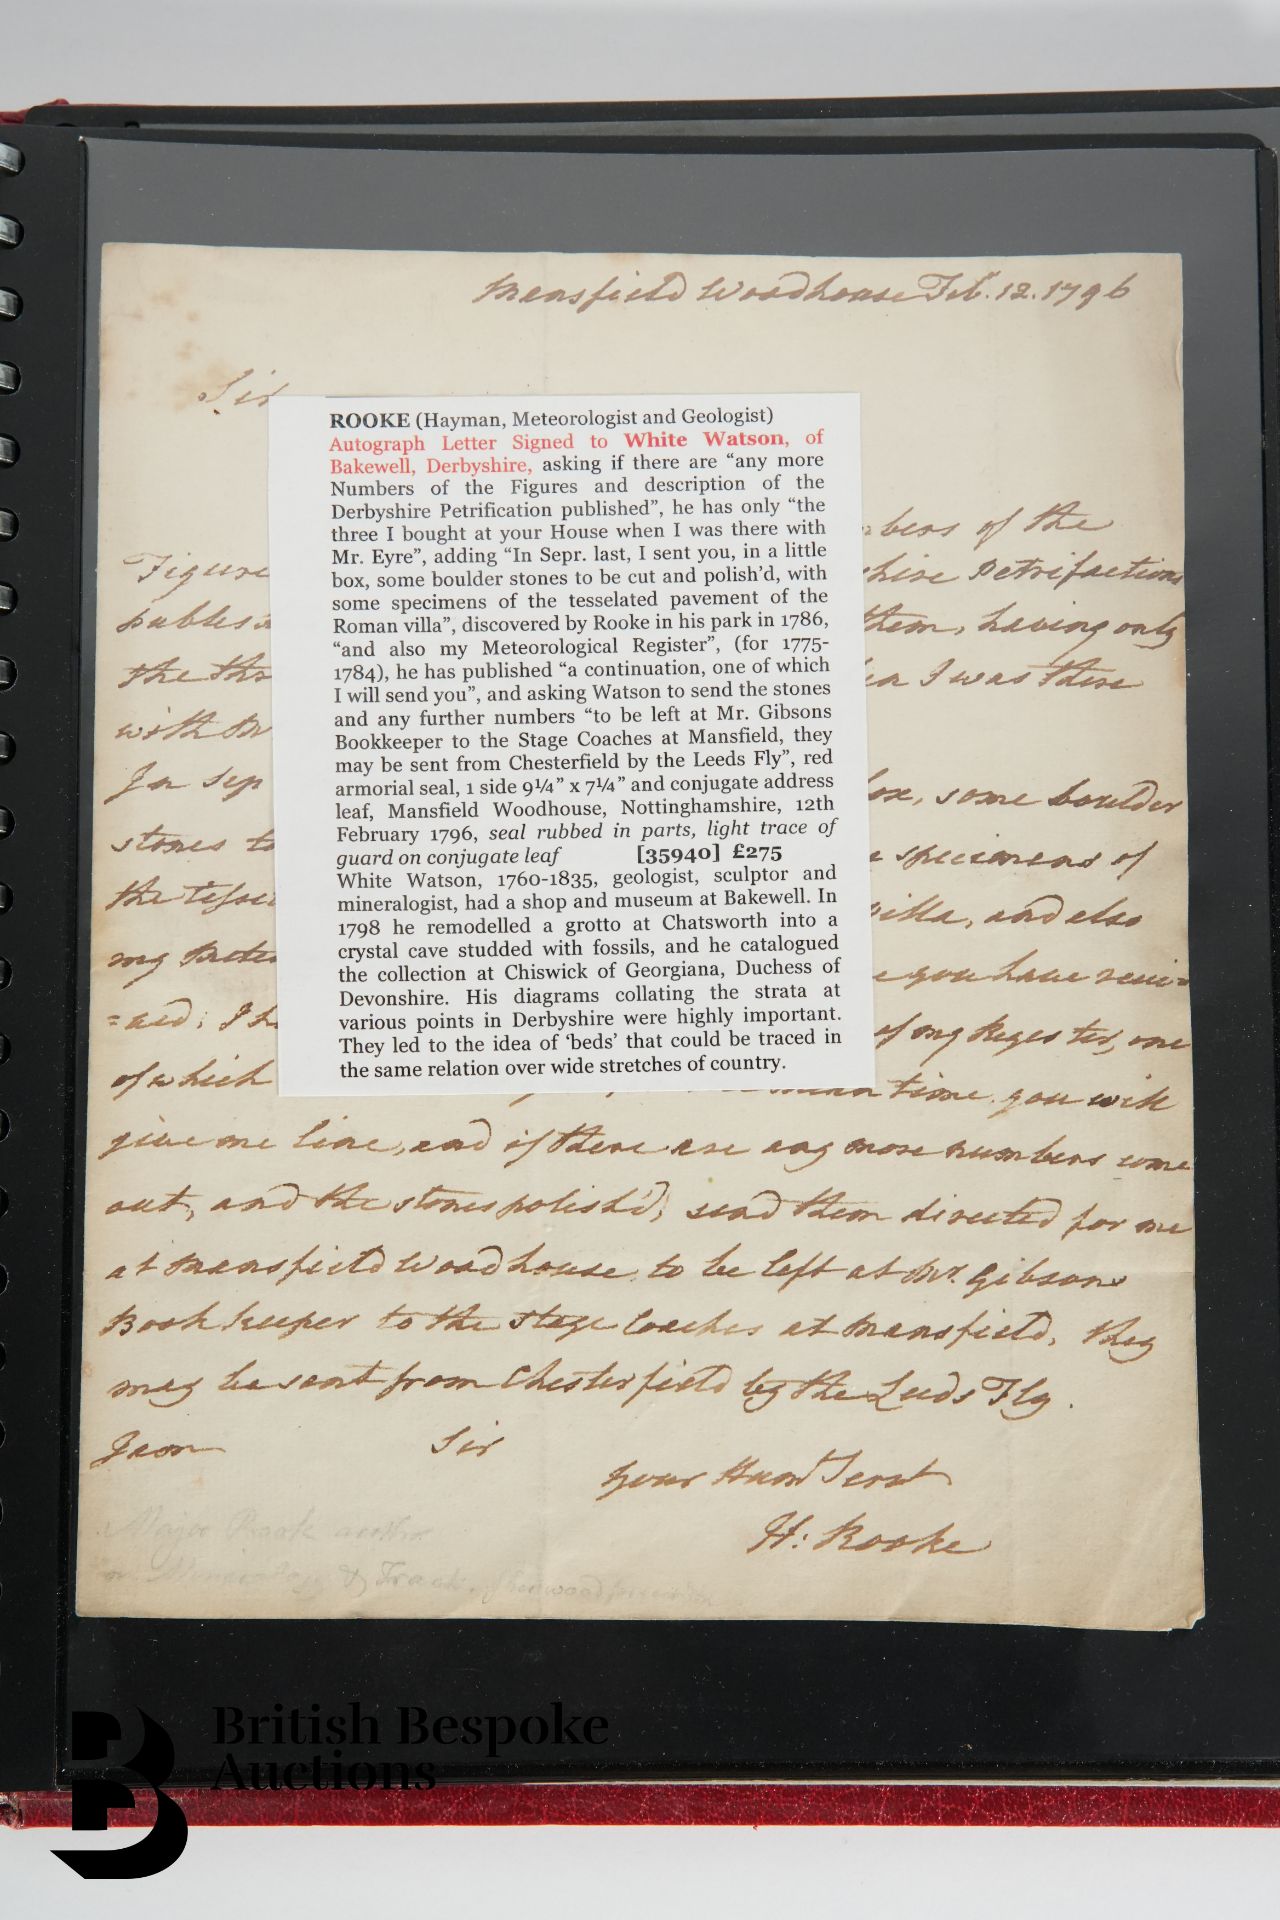 Mansfield Woodhouse Feb. 12. 1796
Sir
ROOKE (Hayman, Meteorologist and Geologist)
Autograph Letter Signed to White Watson, of
Bakewell, Derbyshire, asking if there are “any more
Numbers of the Figures and description of the
Derbyshire Petrification published”, he has only “the
three I bought at your House when I was there with
Mr. Eyre”, adding “In Sepr. last, I sent you, in a little
box, some boulder stones to be cut and polish’d, with
some specimens of the tesselated pavement of the
Roman villa”, discovered by Rooke in his park in 1786,
“and also my Meteorological Register”, (for 1775-
1784), he has published “a continuation, one of which
I will send you”, and asking Watson to send the stones
and any further numbers “to be left at Mr. Gibsons
Bookkeeper to the Stage Coaches at Mansfield, they
may be sent from Chesterfield by the Leeds Fly”, red
armorial seal, 1 side 9¼” x 7¼” and conjugate address
leaf, Mansfield Woodhouse, Nottinghamshire, 12th
February 1796, seal rubbed in parts, light trace of
guard on conjugate leaf [35940] £275
White Watson, 1760-1835, geologist, sculptor and
mineralogist, had a shop and museum at Bakewell. In
1798 he remodelled a grotto at Chatsworth into a
crystal cave studded with fossils, and he catalogued
the collection at Chiswick of Georgiana, Duchess of
Devonshire. His diagrams collating the strata at
various points in Derbyshire were highly important.
They led to the idea of ‘beds’ that could be traced in
the same relation over wide stretches of country.
mbers of the
Figure shire Petrifactions
publis them, having only
the thr en I was there
with M
In Sep box, some boulder
stones to specimens of
the tesse villa, and also
my Mete e you have reciv-
=aed; I h of my Register, one
of which mean time you will
give me line, and if there are any more numbers come
out, and the stones polish'd, send them directed for me
at Mansfield Woodhouse to be left at Mr. Gibsons
Book keeper to the Stage Coaches at Mansfield, they
may be sent from Chesterfield by the Leeds Fly.
I am Sir
Your Hum Servt
H: Rooke
Major Rooke author
British Bespoke
Auctions